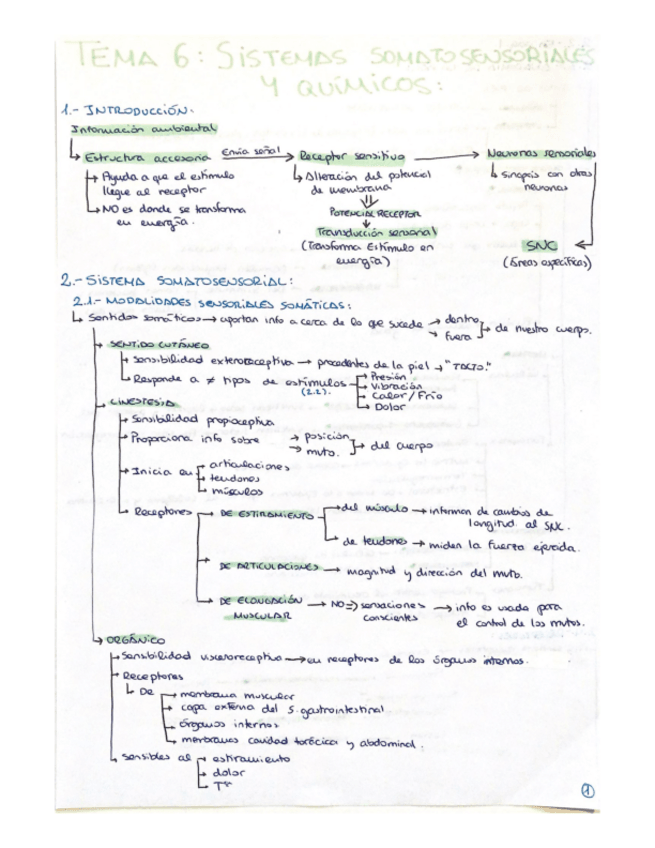 TEMA 6: SISTEMAS SOMATOSENSORIALES
Y QUÍMICOS:
1.- INTRODUCCIÓN.
Información ambiental
Estructura accesoria Envía señal Receptor sensitivo Neuronas sensoriales
Ayuda a que el estímulo
llegue al receptor
NO es donde se transforma
en energía.
Alteración del potencial
de membrana
POTENCIAL RECEPTOR
Transducción sensorial
(Transforma Estímulo en
energía)
Sinapsis con otras
neuronas
SNC
(áreas específicas)
2.- SISTEMA SOMATOSENSORIAL:
2.1.- MODALIDADES SENSORIALES SOMÁTICAS:
Sentidos somáticos → aportan info a cerca de lo que sucede → dentro
→ fuera de nuestro cuerpo.
SENTIDO CUTÁNEO
Sensibilidad exteroceptiva → procedentes de la piel → "TACTO."
Responde a ≠ tipos de estímulos
(2.2).
Presión
Vibración
Calor / Frío
Dolor
CINESTESIA
Sensibilidad propioceptiva
Proporciona info sobre → posición
→ mvto. del cuerpo
Inicia en
articulaciones
tendones
músculos
Receptores
DE ESTIRAMIENTO
del músculo → informan de cambios de
longitud al SNC.
de tendones → miden la fuerza ejercida.
DE ARTICULACIONES → magnitud y dirección del mvto.
DE ELONGACIÓN
MUSCULAR
→ NO => sensaciones
conscientes
→ info es usada para
el control de los mvtos.
ORGÁNICO
Sensibilidad visceroreceptiva → en receptores de los órganos internos.
Receptores
De
membrana muscular
capa externa del s. gastrointestinal
órganos internos
membranas cavidad torácica y abdominal.
Sensibles al
estiramiento
dolor
Tª
1